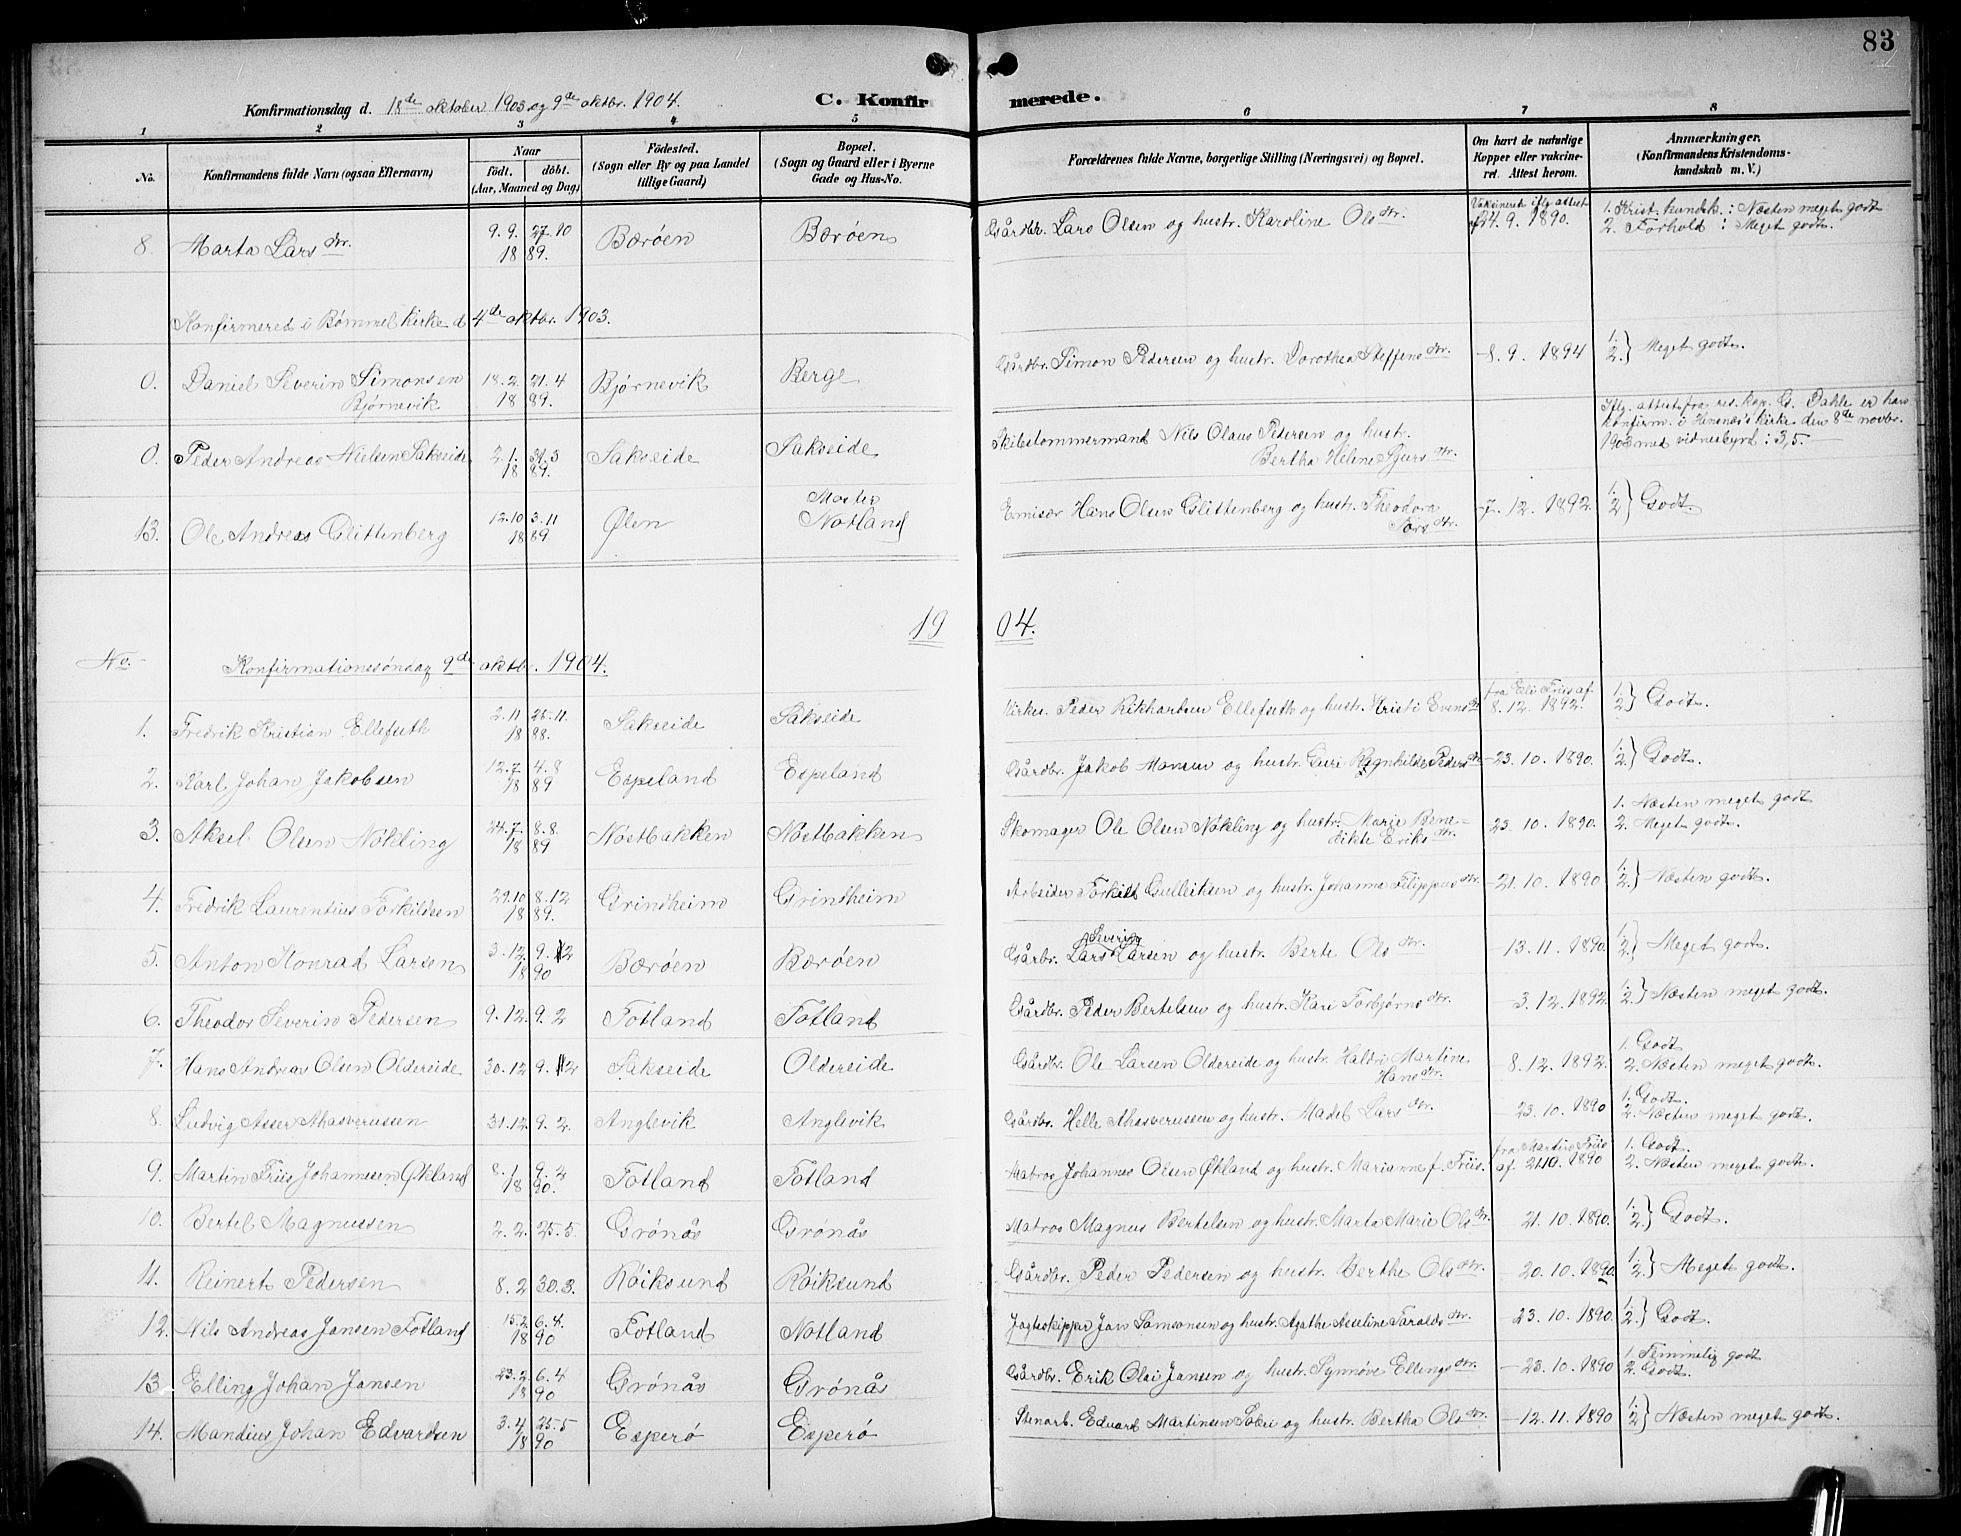 83
Konfirmationsdag d. 18de oktober 1903 og 9de oktbr. 1904.
C. Konfirmerede.
1 2 3 4 5 6 7 8
No.
Konfirmandens fulde Navn (ogsaa Efternavn)
Naar
födt. döbt.
(Aar, Maaned og Dag)
Födested.
(Sogn eller By og paa Landet
tillige Gaard)
Bopæl.
(Sogn og Gaard eller i Byerne
Gade og Hus-No.
Forældrenes fulde Navne, borgerlige Stilling (Næringsvei) og Bopæl.
Om havt de naturlige
Kopper eller vakcine-
ret. Attest herom.
Anmærkninger.
(Konfirmandens Kristendoms-
kundskab m. V.)
8 Marta Larsdtr. 9.9. 27.10 1889. Bærøen Bærøen Gårdbr. Lars Olsen og hustr. Karoline Olsdtr. Vaksineret iflg attest af 14.9.1890. 1. Krist. kundsk.: Næsten meget godt
2. Forhold: Meget godt.
Konfirmered i Bømmel kirke d 4de oktbr. 1903.
0. Daniel Severin Simonsen
Bjørnevik 18.2. 21.4 1889. Bjørnevik Berge Gårdbr. Simon Pedersen og hustr. Dorothea Steffensdtr. -8.9.1894 1. 2.} Meget godt.
0. Peder Andreas Nielsen Sakseide 2.1. 31.3 1889. Sakseide Sakseide Skibstømmermand Nils Olaus Pedersen og hustr.
Bertha Helene Sjursdtr. Iflg. attest fra res. kap. G. Dahle er han
konfirm. i kirke den 8de novbr.
1903 med vidnesbyrd: 3,5.
13. Ole Andreas Glittenberg 12.10 3.11 1889 Ølen Moster
Notland Emisær Hans Olsen Glittenberg og hustr. Theodora
dtr. -7.12.1892. 1. 2} Godt
1904.
No. Konfirmationssøndag 9de oktbr. 1904.
1. Fredrik Kristian Ellefseth 2.11 25.11. 1888. Sakseide Sakseide Kirkes. Peder Rikhartsen Ellefseth og hustr. Kristi Evensdtr. fra Eli Friis af
8.12.1892. 1. 2} Godt.
2. Karl Johan Jakobsen 12.7 4.8 1889 Espeland Espeland Gårdbr. Jakob Monsen og hustr. Guri Ragnhilde Pedersdtr. -23.10.1890. 1. 2.} Godt.
3. Aksel Olsen Nökling 24.7. 8.8. 1889 Nöstbakken Nöstbakken Skomager Ole Olsen Nökling og hustr. Marie Bene-
dikte Eriksdtr. -23.10.1890. 1. Næsten meget godt
2. Meget godt.
4. Fredrik Laurentius Torkildsen 29.10 8.12 1889. Grindheim Grindheim Arbeider Torkild Gulleiksen og hustr. Johanna Filippusdtr. -21.10.1890 1. 2.} Næsten godt.
5. Anton Konrad Larsen 3.12 9.2 1890 Bærøen Bærøen Gårbr. Lars Severin Larsen og hustr. Berte Olsdtr. -13.11.1890. 1. 2.} Meget godt.
6. Theodor Severin Pedersen 9.12. 9.2 Fotland Fotland Gårdbr. Peder Bertelsen og hustr. Kari Torbjørnsdtr. -3.12.1892 1. 2.} Næsten meget godt.
7. Hans Andreas Olsen Oldereide 30.12 9.2 Sakseide Oldereide Gårdbr. Ole Larsen Oldereide og hustr. Haldri Martine
Hansdtr. -8.12.1892. 1. Godt
2. Næsten meget godt.
8. Ludvig Asser Ahasverussen 31.12. 9.2. Anglevik Anglevik Gårdbr. Helle Ahasverussen og hustr. Madel Larsdtr. -23.10.1890 1. Godt.
2. Næsten meget godt.
9. Martin Friis Johannesen Økland 8.1 9.2 1890. Fotland Fotland Matros Johannes Olsen Økland og hustr. Marianne f. Friis. fra Martin Friis
af 21.10.1890 1. Godt.
2. Næsten meget godt.
10. Bertel Magnussen 2.2. 25.5. Grönås Grönås Matros Magnus Bertelsen og hustr. Marta Marie Olsdtr. -21.10.1890. 1. 2.} Godt.
11. Reinert Pedersen 8.2 30.3. Röiksund Röiksund Gårdbr. Peder Pedersen og hustr. Berthe Olsdtr. -20.10.1890. 1. 2.} Meget godt.
12. Nils Andreas Jansen Fotland 15.2. 6.4. 1890 Fotland Notland Jagteskipper Jan Samsonsen og hustr. Agathe Asseline Taraldsdtr. -23.10.1890. 1. 2.} Godt.
13. Elling Johan Jansen 23.2. 6.4 1890 Grönås Grönås Gårdbr. Erik Olai Jansen og hustr. Synnøve Ellingsdtr. -23.10.1890 1. Temmelig godt
2. Godt.
14. Mandius Johan Edvardsen 3.4. 25.5 1890 Esperø Esperø Stenarb. Edvard Martinsen og hustr. Bertha Olsdtr. -12.11.1890 1. 2} Næsten meget godt.